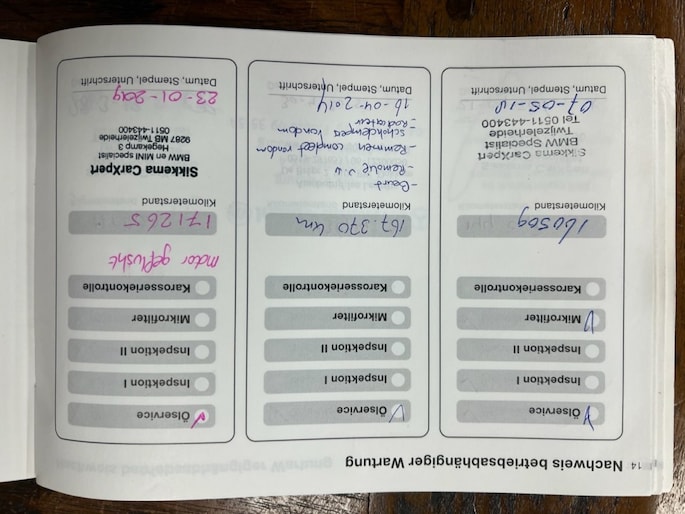 14 Nachweis betriebsabhängiger Wartung
Ölservice
Inspektion I
Inspektion II
Mikrofilter
Karosseriekontrolle
160509
Kilometerstand
Sikkema CarXpert
BMW Specialist
Twijzelerheide
Tel 0511-443400
Datum, Stempel, Unterschrift
Ölservice
Inspektion I
Inspektion II
Mikrofilter
Karosseriekontrolle
167.370 km
Kilometerstand
- Beurt
- Remolie v.v
- Remmen compleet rondom
- schokdempers rondom
- Radiateur
16-04-2014
Datum, Stempel, Unterschrift
Ölservice
Inspektion I
Inspektion II
Mikrofilter
Karosseriekontrolle
motor geflusht
171265
Kilometerstand
Sikkema CarXpert
BMW en MINI specialist
Hegekamp 3
9287 MB Twijzelerheide
0511-443400
23-01-2019
Datum, Stempel, Unterschrift